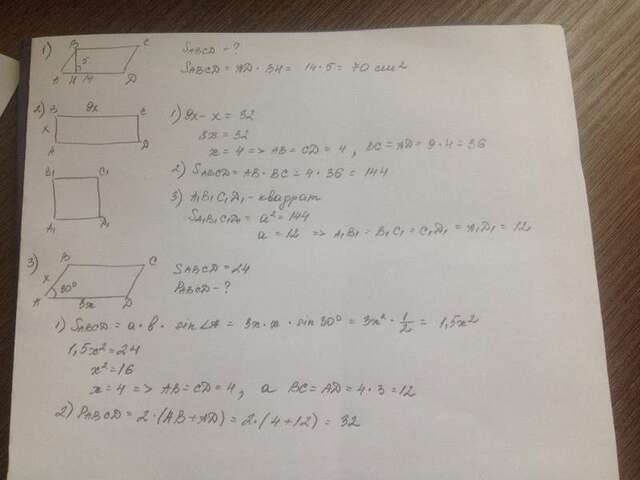 1) B C
5
B H 14 D
SABCD - ?
SABCD = AD · BH = 14 · 5 = 70 см2
2) B 9x C
x
A D
1) 9x - x = 32
8x = 32
x = 4 => AB = CD = 4, BC = AD = 9 · 4 = 36
2) SABCD = AB · BC = 4 · 36 = 144
B1 C1
A1 D1
3) A1B1C1D1 - квадрат
SA1B1C1D1 = a² = 144
a = 12 => A1B1 = B1C1 = C1D1 = A1D1 = 12
3) B C
x
A 30° D
3x
SABCD = 24
PABCD - ?
1) SABCD = a · b · sin∠A = 3x · x · sin 30° = 3x² · 1/2 = 1,5x²
1,5x² = 24
x² = 16
x = 4 => AB = CD = 4, а BC = AD = 4 · 3 = 12
2) PABCD = 2 · (AB + AD) = 2 · (4 + 12) = 32